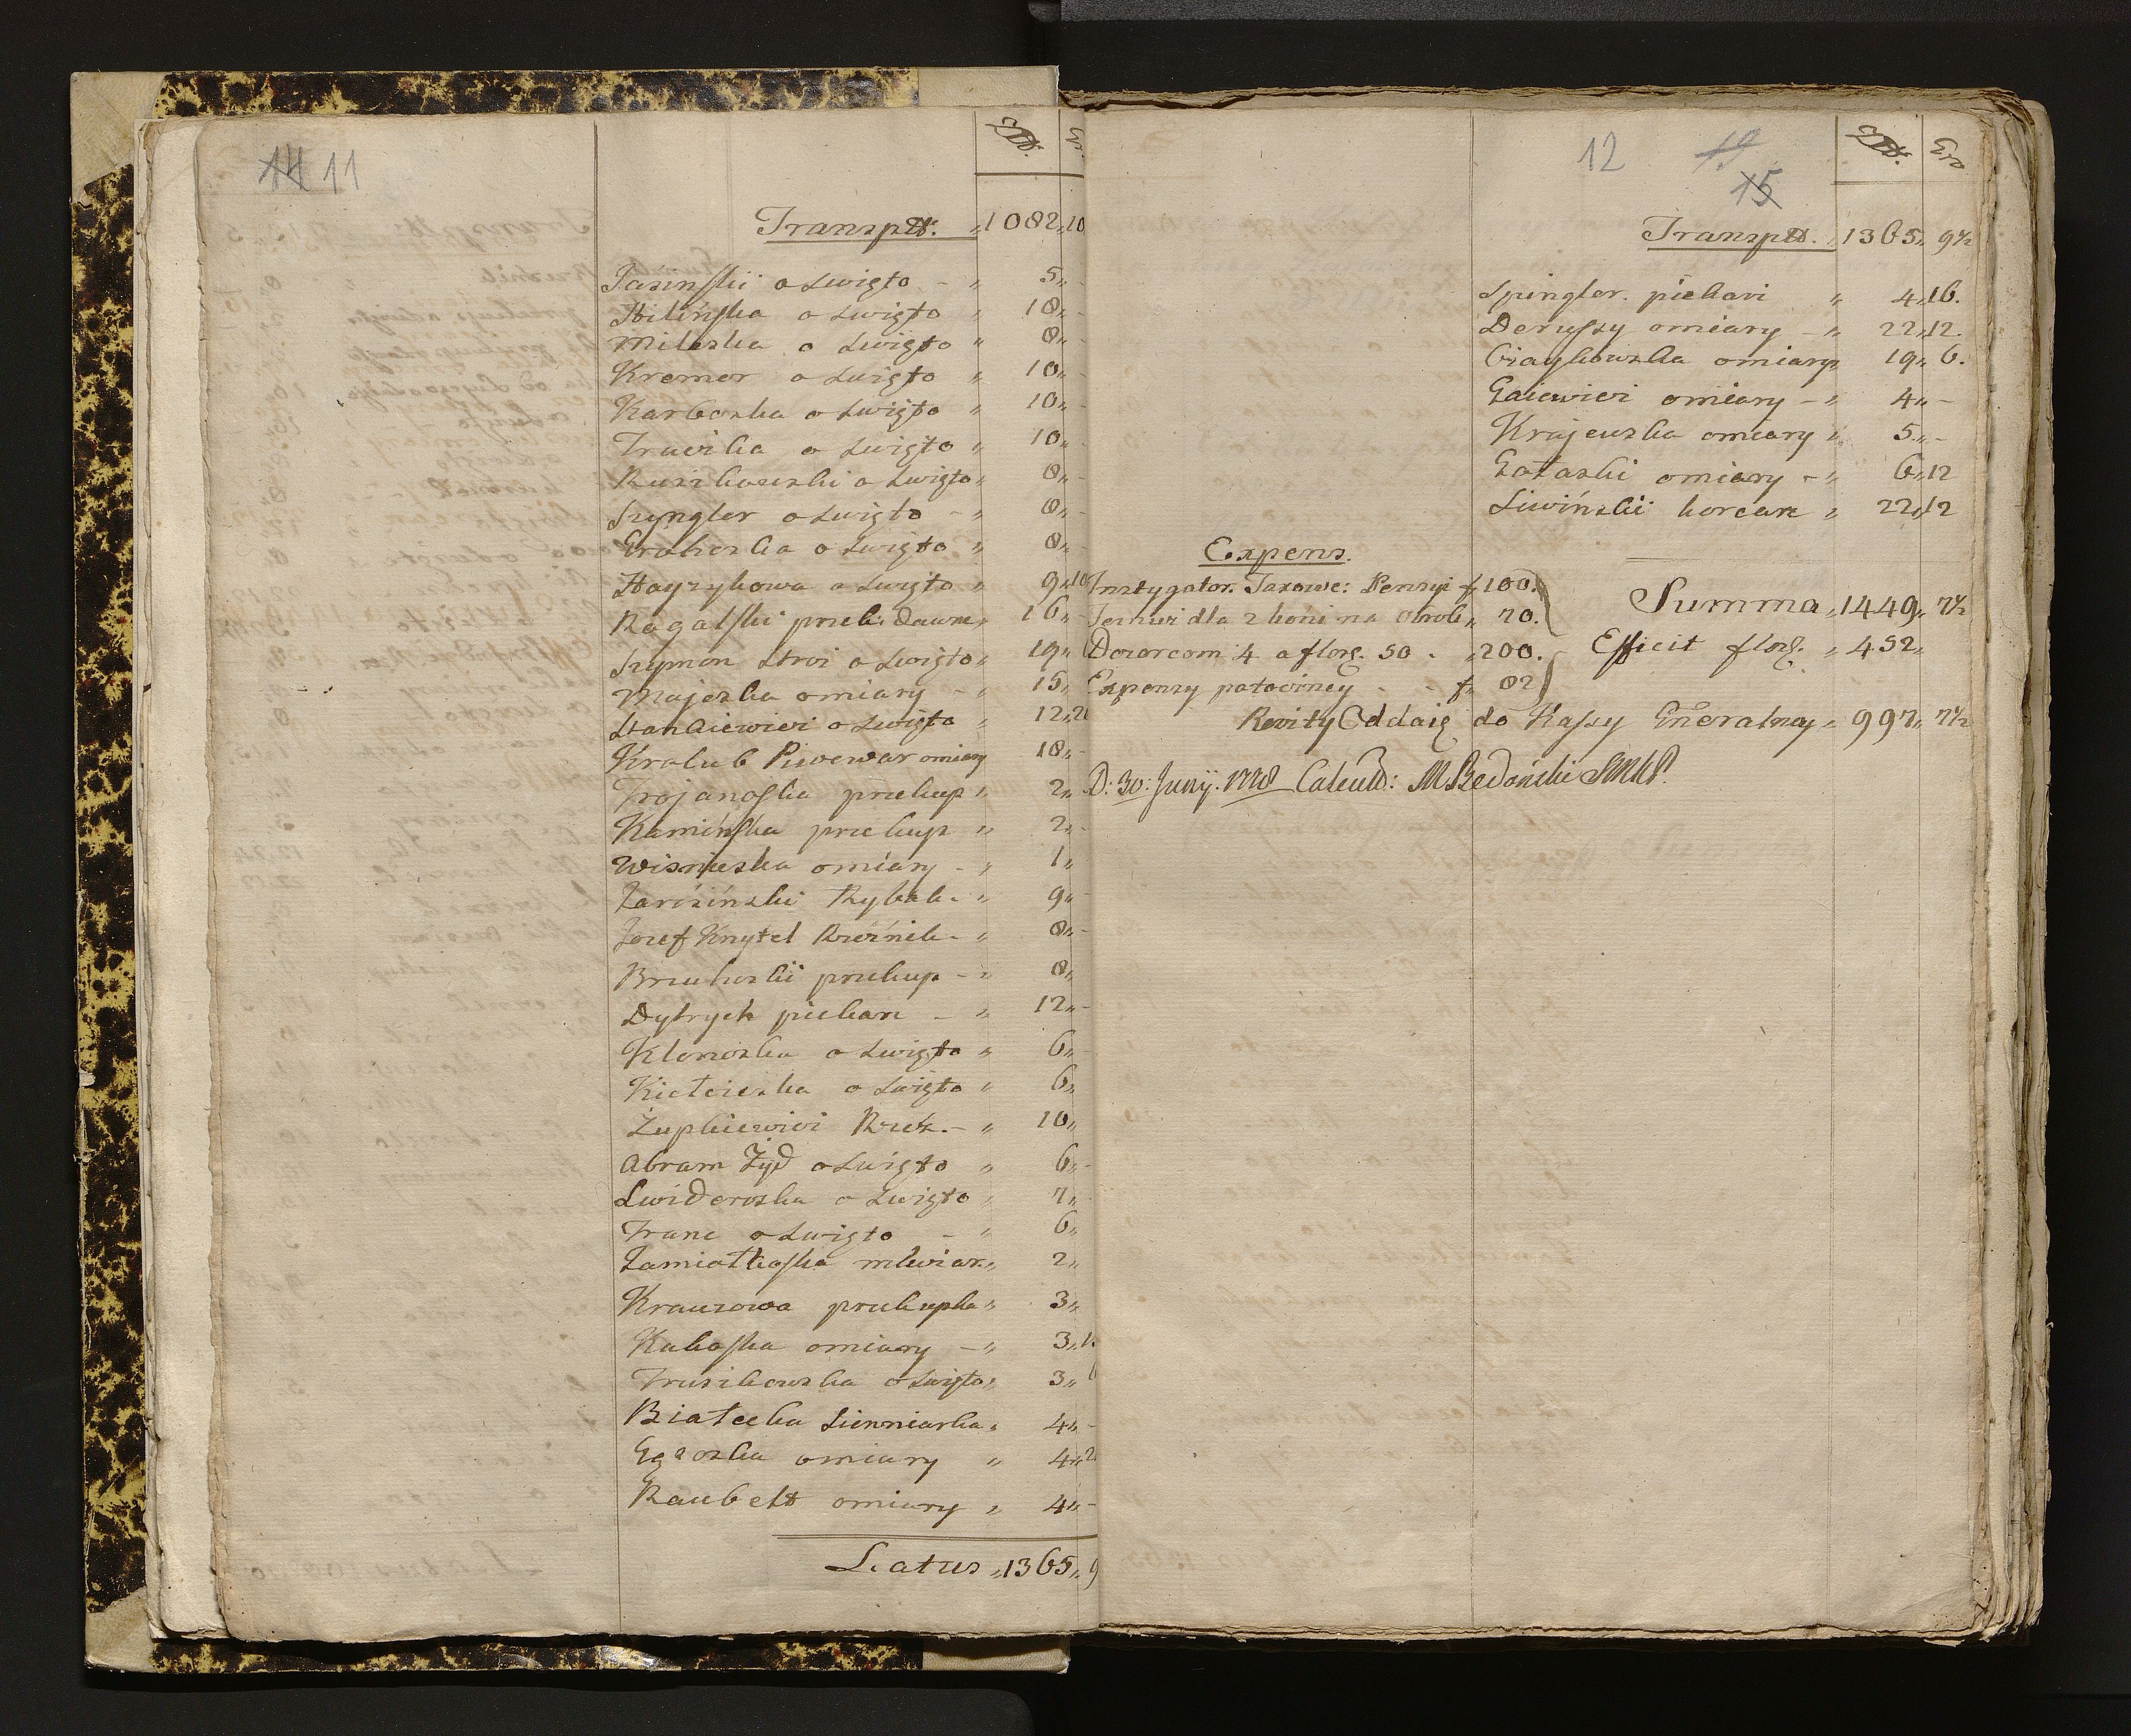 14 11
Złt. Gr.
Transplt. „ 1082„ 10
Jasinskii o swięto - „ 5„ -
Bilińska o swięto „ 18„ -
Mileska o swięto „ 8„ -
Kremer o swięto „ 10„ -
Karboska o swięto „ 10„ -
o swięto „ 10„ -
Rusikowski o swięto „ 8„ -
Szyngler o swięto - „ 8„ -
Groboska o swięto „ 8„ -
Hayzykowa o swięto „ 9„ 10
Rogalski przek: Dawne„ 16„ -
Szymon o swięto „ 19„
Majeska omiary - „ 15„
Stankiewicz o swięto „ 12„ 2
Kralub Piwowar omiary 18„ -
Trojanoska przekup „ 2„
Kaminska przekup „ 2„ -
Wisnieska omiary - „ 1„
Zarzinski Rybak. „ 9„ -
Jozef Knytel Rzeźnik - „ 8„ -
przekup - „ 8„
Dytrych piekarz - „ 12„ -
Klonoska o swięto „ 6„ -
Kiełcieska o swięto „ 6„
Zupkiewicz Rzeź. - „ 10„
Abram Żyd o swięto „ 6„ -
Swideroska o swięto „ 7„
Franc o swięto - „ 6„
Zamiatkoska mlviar. „ 2„
Krauzowa przekupka „ 3„
Kukoska omiary - „ 3„ 1
Trusikowska o swięto „ 3„ 6
Białecka Sienniarka „ 4„ -
omiary „ 4„ 2
Raubelt omiary „ 4„ -
Latus „ 1365„ 9
12 15
Złt. Gro
Transplt. „ 1365„ 9½
Spingler. piekarz „ 4„ 16.
Deruszy omiary - „ 22„ 12.
omiary „ 19„ 6.
Gaiewicz omiary - „ 4„ -
Krajewska omiary „ 5„ -
Gołaski omiary - „ 6„ 12
Siwińskii korcarz „ 22„ 12
Expens.
Instygator. Taxowe: Pensyi f„ 100.
dla 2 koni na obrok „ 70.
Dozorcom 4 a florē. 50 . „ 200.
Expensy potoczney - - f„ 82
Summa „ 1449„ 7½
Efficit florē. „ 452„
Reszty Oddaię do Kassy Gñeralney „ 997„ 7½
D: 30: Junÿ. 1778 Calculo: M Bedoński